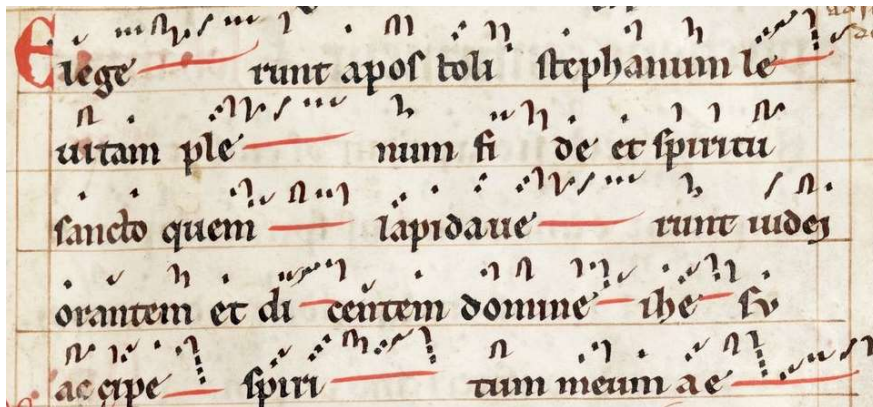 Elege runt apos toli stephanum le
uitam ple num fi de et spiritu
sancto quem lapidaue runt iudei
orantem et di centem domine ihe su
accipe spiri tum meum a e